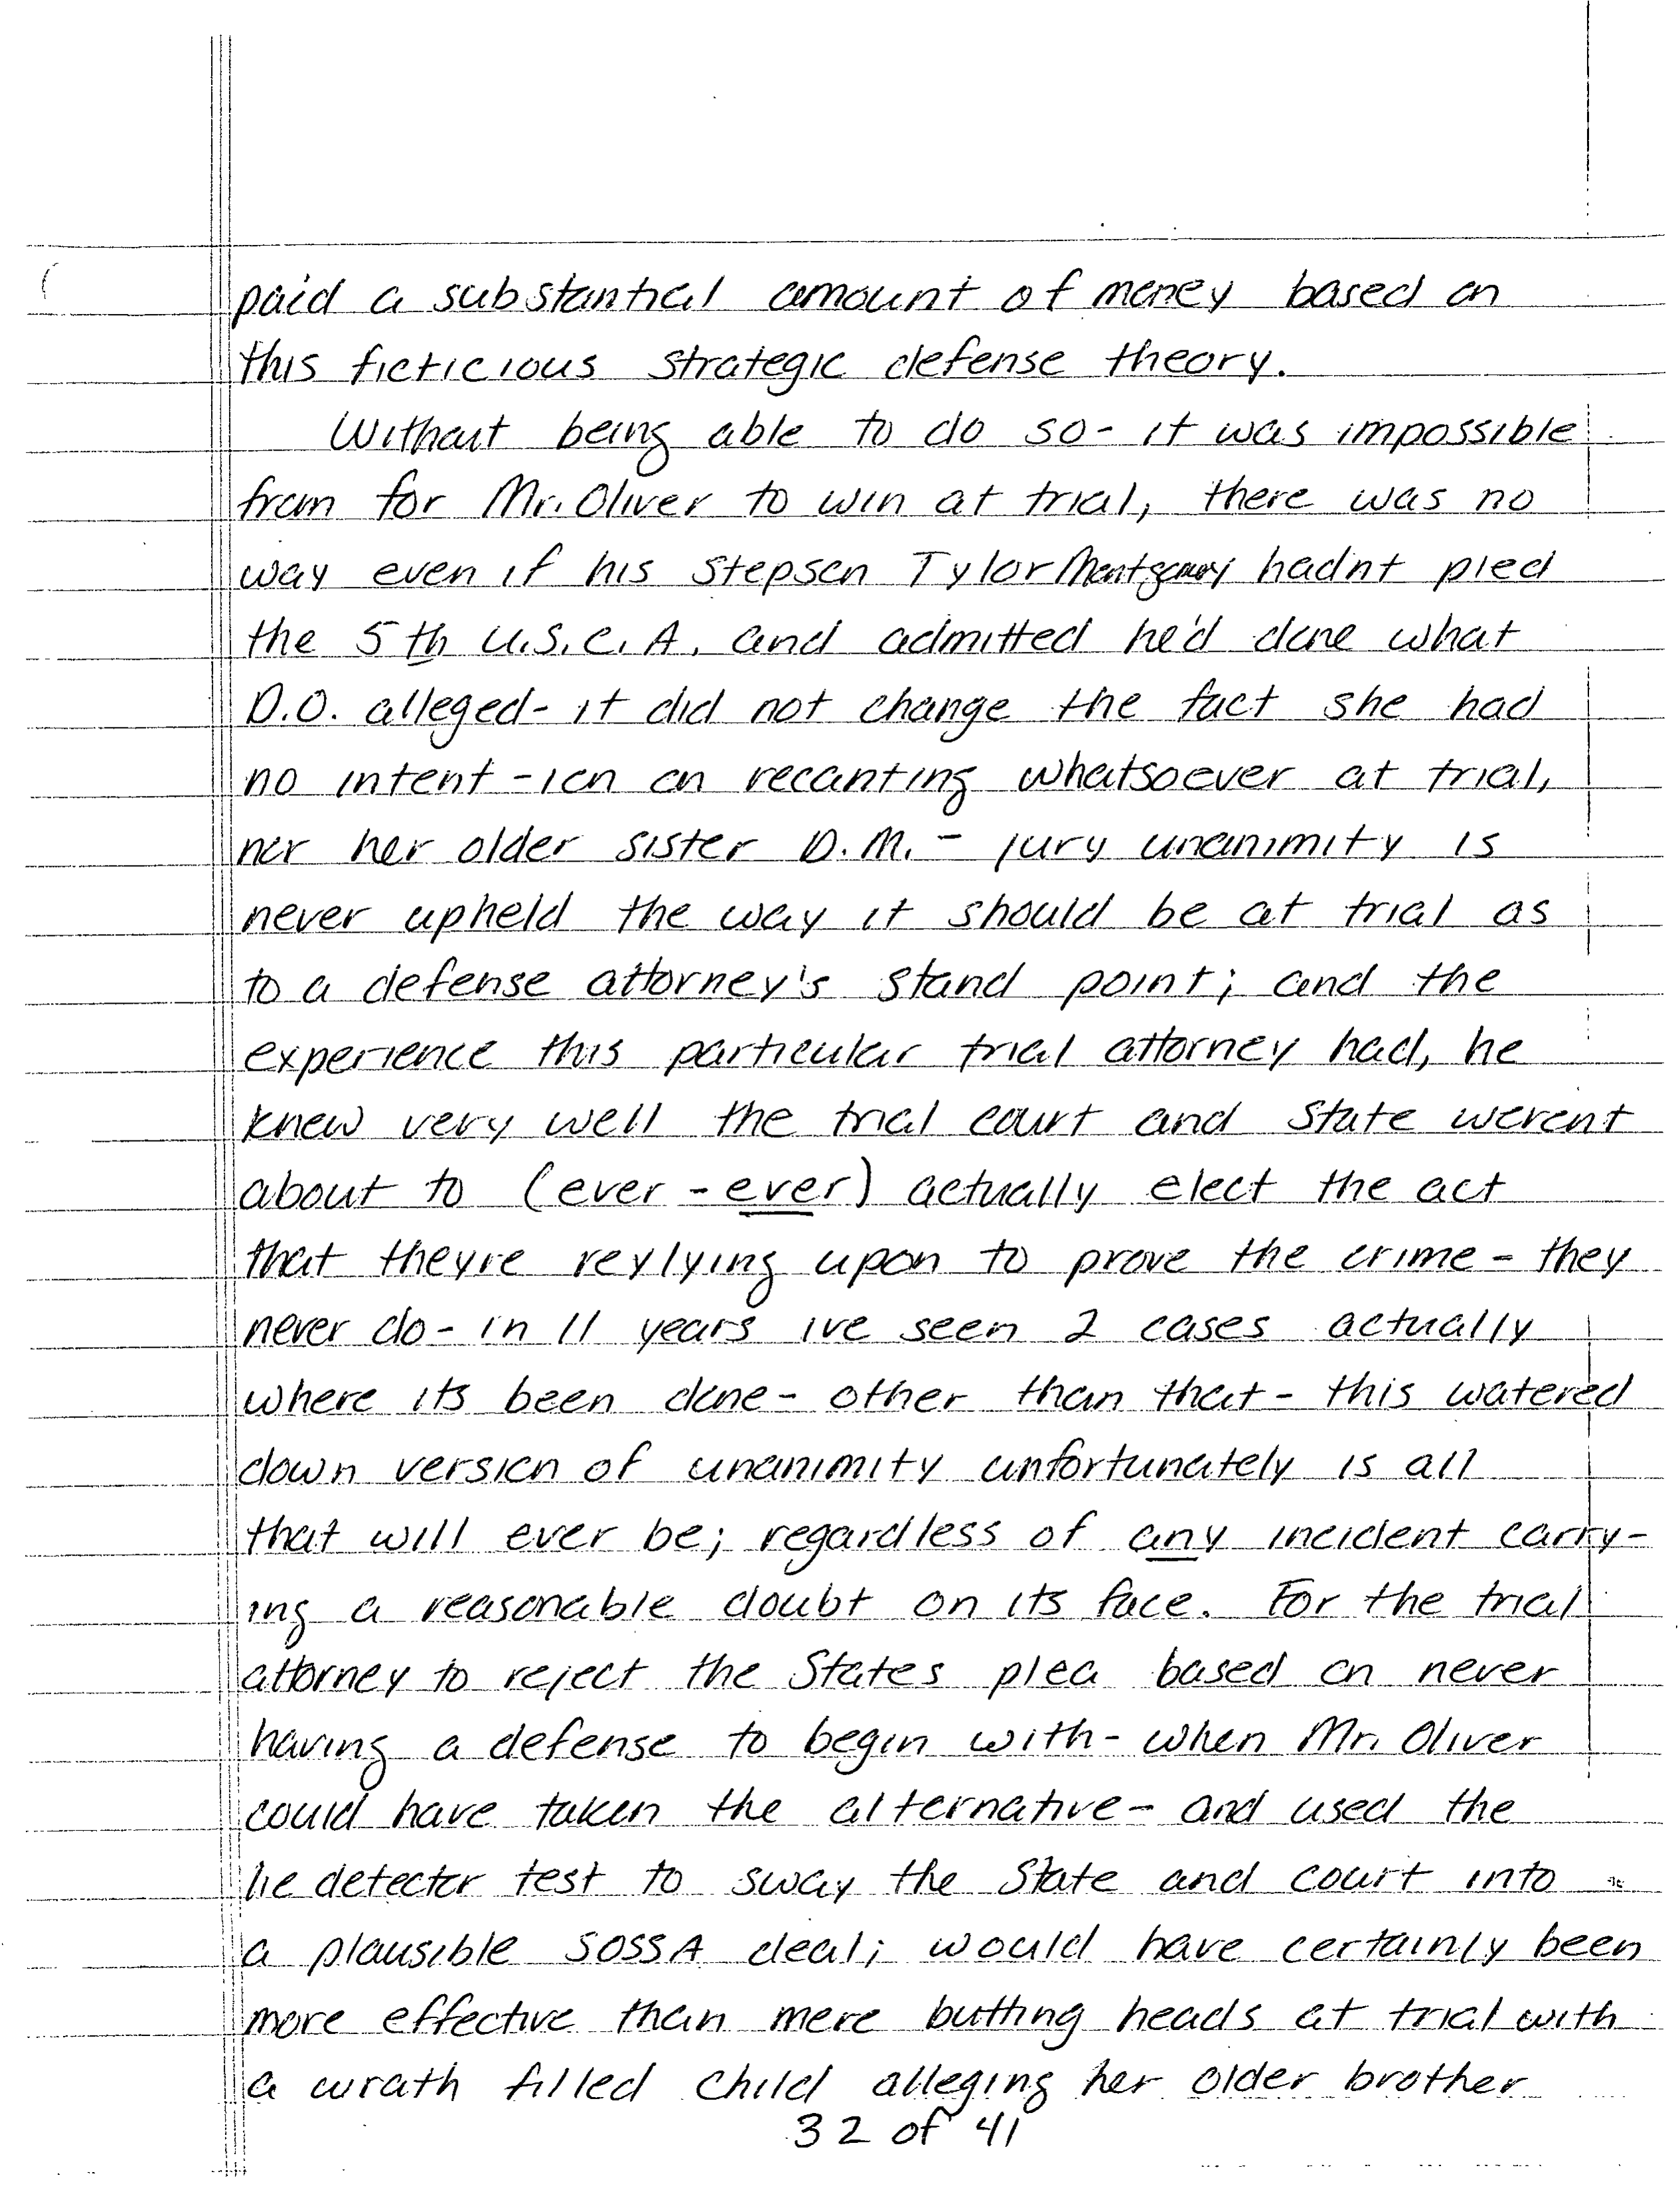 paid a substantial amount of money based on
this ficticious strategic defense theory.
Without being able to do so- it was impossible
from for Mr. Oliver to win at trial, there was no
way even if his stepson Tylor Montgomery hadnt pled
the 5th U.S.C.A. and admitted he'd done what
D.O. alleged- it did not change the fact she had
no intent-ion on recanting whatsoever at trial,
nor her older sister D.M. - jury unanimity is
never upheld the way it should be at trial as
to a defense attorney's stand point; and the
experience this particular trial attorney had, he
knew very well the trial court and State werent
about to (ever - ever) actually elect the act
that theyre rexlying upon to prove the crime - they
never do - in 11 years ive seen 2 cases actually
where its been done - other than that - this watered
down version of unanimity unfortunately is all
that will ever be; regardless of any incident carry-
ing a reasonable doubt on its face. For the trial
attorney to reject the States plea based on never
having a defense to begin with - when Mr. Oliver
could have taken the alternative - and used the
lie detector test to sway the State and court into
a plausible SOSSA deal; would have certainly been
more effective than mere butting heads at trial with
a wrath filled child alleging her older brother
32 of 41